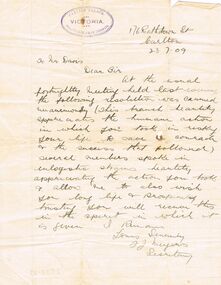 VICTORIA
176 Rathdown St
Carlton
23.7.09
To Mr Davis
Dear Sir
At the usual
fortnightly meeting held last evening
the following resolution was carried
unanimously (This branch heartily
appreciates the humane action
in which you took in risking
your life to save a comrade
on the success that followed)
several members spoke in
eulogistic strains heartily
appreciating the action you took
& allow me to also wish
you long life & prosperity
trusting you will receive this
in the spirit in which it
is given I Remain
Yours Sincerely
Secretary